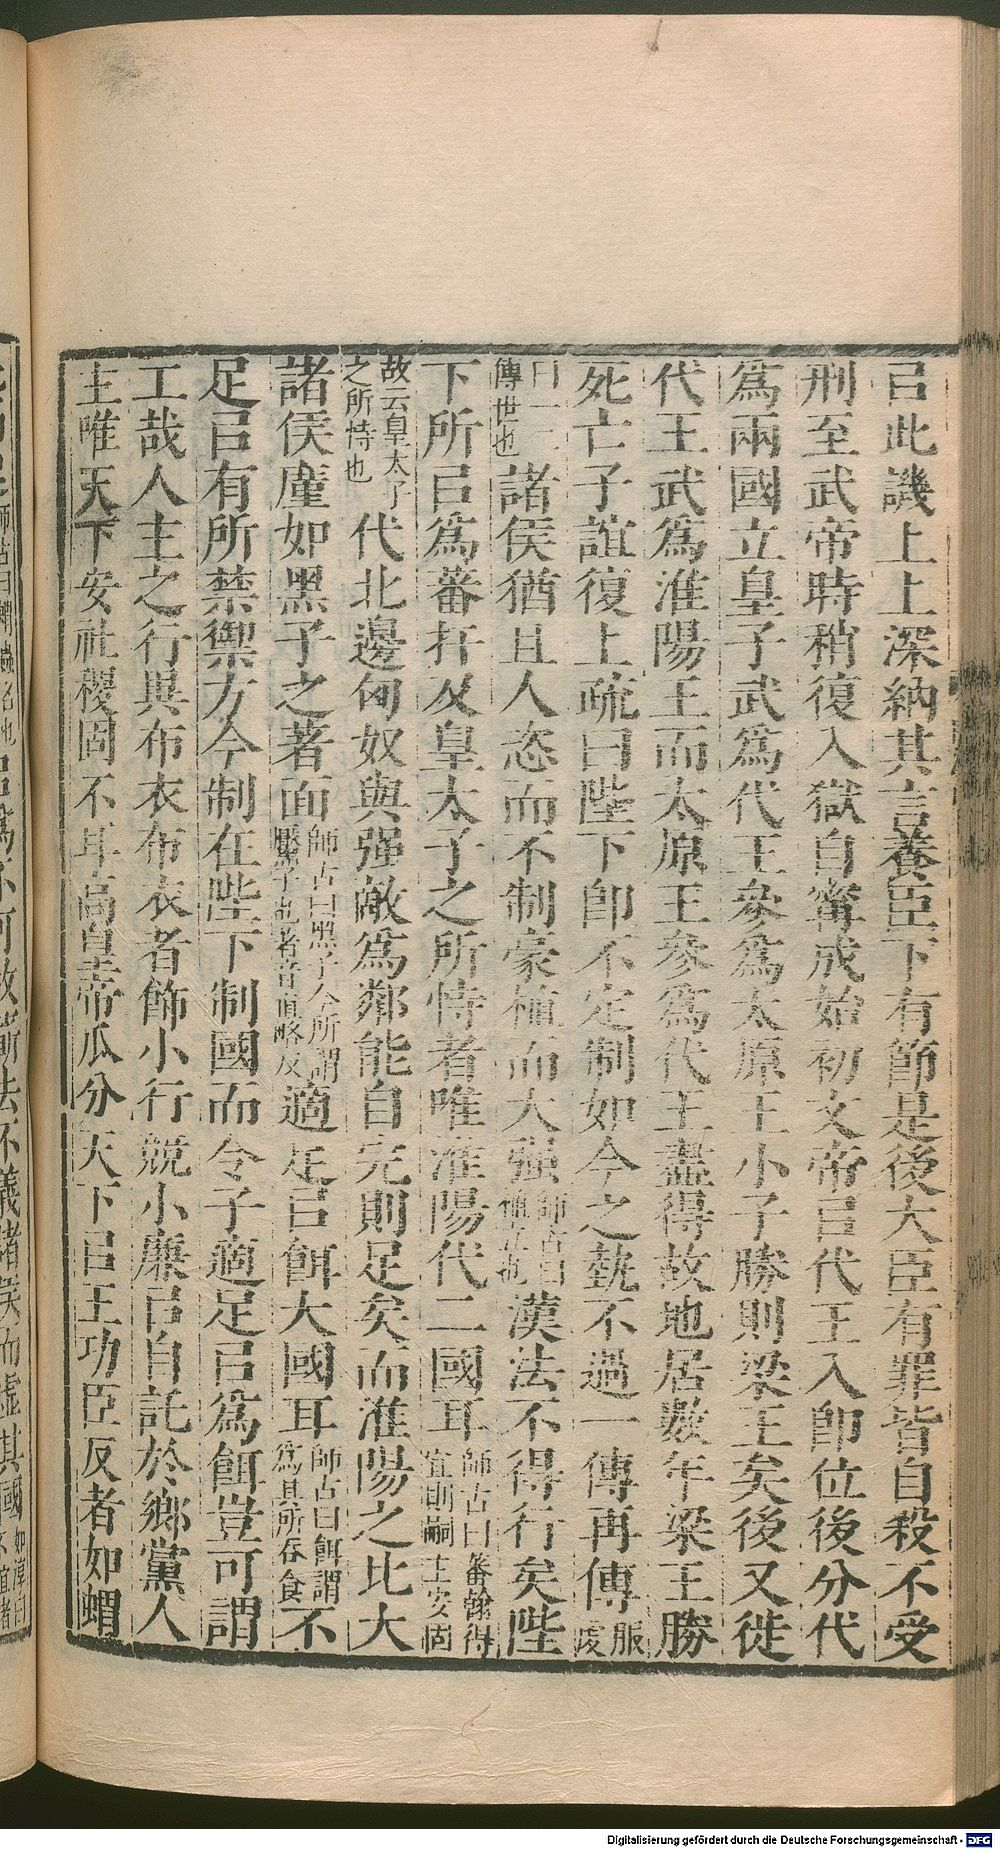 㠯此譏上上深納其言養臣下有節是後大臣有罪皆自殺不受
刑至武帝時稍復入獄自甯成始初文帝㠯代王入卽位後分代
爲兩國立皇子武爲代王參爲太原王小子勝則梁王矣後又徙
代王武爲淮陽王而太原王參爲代王盡得故地居數年梁王勝
死亡子誼復上疏曰陛下卽不定制如今之埶不過一傳再傳服虔
曰一二傳世也諸侯猶且人恣而不制豪植而大强師古曰植立也漢法不得行矣陛
下所㠯爲蕃扞及皇太子之所恃者唯淮陽代二國耳師古曰蕃翰得宜則嗣王安固
故云皇太子之所恃也代北邊匈奴與强敵爲鄰能自完則足矣而淮陽之比大
諸侯廑如黑子之著面師古曰黑子今所謂黶子也著音直略反適足㠯餌大國耳師古曰餌謂爲其所吞食不
足㠯有所禁禦方今制在陛下制國而令子適足㠯爲餌豈可謂
工哉人主之行異布衣布衣者飾小行競小廉㠯自託於鄉黨人
主唯天下安社稷固不耳高皇帝瓜分天下㠯王功臣反者如蝟
師古曰蝟蟲名也㠯爲不可故蘄去不義諸侯而虛其國如淳曰
Digitalisierung gefördert durch die Deutsche Forschungsgemeinschaft - DFG